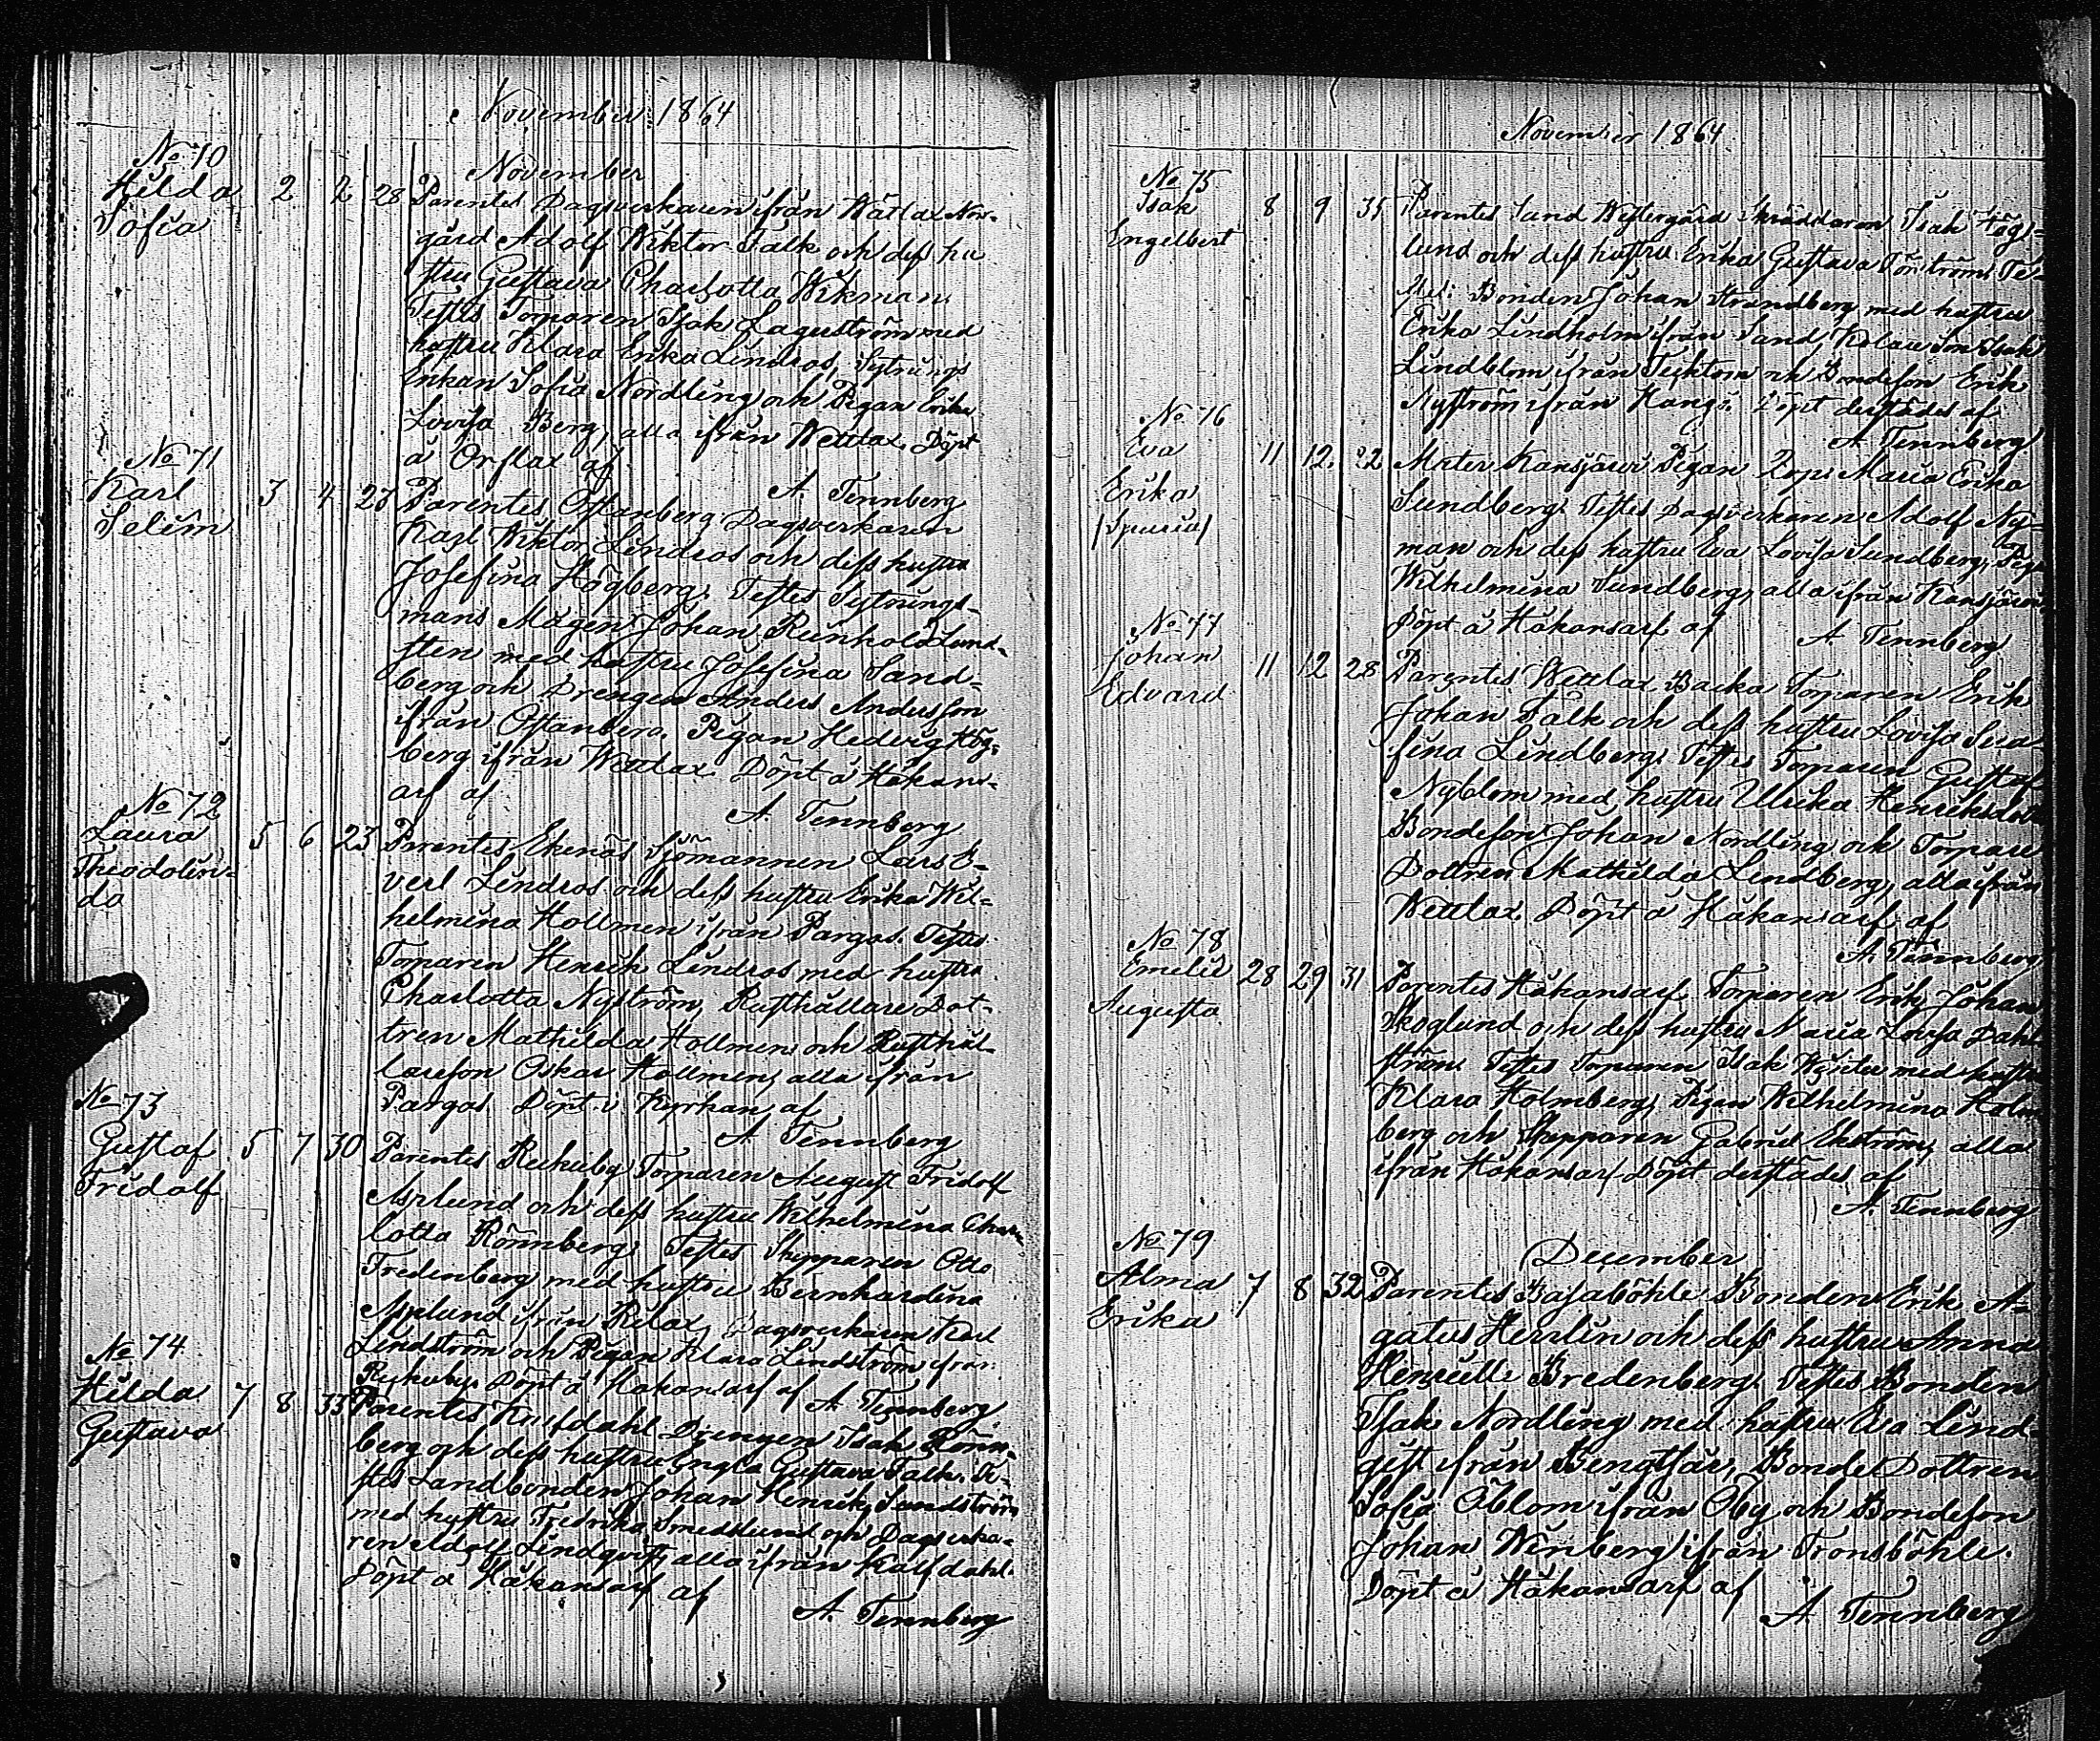 November 1864
November
No 70
Hilda 2 2 28 Parentes Dagsverkaren ifrån Wättlax Nor-
Sofia gård Adolf Wiktor Falk och dess hu
stru Gustava Charlotta Wikman.
Testes Torparen Isak Lagerström med
hustru Klara Erika Lindros, Sytnings
Enkan Sofia Nordling och Pigan Erika
Lovisa Berg, alla ifrån Wettlax. Döpt
å Orslax af
A. Tennberg
No 71
Karl 3 4 27 Parentes Östanberg Dagsverkaren
Selim Karl Wiktor Lindros och dess hustru
Josefina Högberg. Testes Sytnings-
mans Mågen Johan Reinhold Lund-
sten med hustru Josefina Sand-
berg och Drengen Anders Andersson
ifrån Östanberg. Pigan Hedvig Hög-
berg ifrån Wettlax. Döpt å Håkans-
arf af
A. Tennberg
No 72
Laura 5 6 23 Parentes Ekenäs Sjömannen Lars E-
Theodolin- verl Lindros och dess hustru Erika Wil-
da helmina Hollmen ifrån Pargas. Testes
Torparen Henrik Lindros med hustru
Charlotta Nyström, Rusthållare Dot-
tren Mathilda Hollmen och Rusthål-
laresson Oskar Hollmen, alla ifrån
Pargas. Döpt i Kyrkan af
A. Tennberg
No 73
Gustaf 5 7 30 Parentes Rekuby Torparen August Fridolf
Fridolf Asplund och dess hustru Wilhelmina Char-
lotta Rönnberg. Testes Skepparen Otto
Fredenberg med hustru Bernhardina
Asplund ifrån Rilax, Dagsverkaren Karl
Lindström och Pigan Klara Lindström ifrån
Rekuby. Döpt å Håkansarf af A. Tennberg
No 74
Hilda 7 8 33 Parentes Drengen Isak Rönn-
Gustava berg och dess hustru Engla Gustava Falk. Te-
stes Landbonden Johan Henrik Sundström
med hustru Fredrika Smedslund och Dagsverka-
ren Adolf Lindqvist, alla ifrån Kalfdahl.
Döpt å Håkansarf af
A. Tennberg
November 1864
No 75
Isak 8 9 35 Parentes Sand Westergård Skräddaren Isak Hög-
Engelbert lund och dess hustru Erika Gustava Törström. Te-
stes: Bonden Johan Strandberg med hustru
Erika Lindholm ifrån Sand, Isak
Lindblom ifrån Tecktom och Bondeson Erik
Nyström ifrån Hangö. Döpt derstädes af
A. Tennberg
No 76
Eva 11 12 22 Mater Kansjärvi Pigan Maria Erika
Erika Sundberg. Testes Dagsverkaren Adolf Ny-
/Spuria/ man och dess hustru Eva Lovisa Sundberg, Pigan
Wilhelmina Sundberg, alla ifrån Kansjärvi.
Döpt å Håkansarf af A. Tennberg
No 77
Johan 11 12 28 Parentes Wettlax Backa Torparen Erik
Edvard Johan Falk och dess hustru Lovisa Sera-
fina Lindberg. Testes Torparen Gustaf
Nyblom med hustru Ulrika Henriksdotter
Bondeson Johan Nordling och Torpare
Dottren Mathilda Lindberg, alla ifrån
Wettlax. Döpt å Håkansarf af
A. Tennberg
No 78
Emelie 28 29 31 Parentes Håkansarf Torparen Erik Johan
Augusta Skoglund och dess hustru Maria Lovisa Dahl-
ström. Testes Torparen Isak Wester med hustru
Klara Holmberg, Pigan Wilhelmina Holm
berg och Skepparen Gabriel Ekström, alla
ifrån Håkansarf. Döpt derstädes af
A. Tennberg
December
No 79
Alma 7 8 32 Parentes Basaböhle Bonden Erik A-
Erika gatus Herrlin och dess hustru Anna
Henriette Bredenberg. Testes Bonden
Isak Nordling med hustru Eva Lind-
qist ifrån Bengtsår, Bonde Dottren
Sofia Öblom ifrån Öby och Bondeson
Johan Winberg ifrån Tronsböhle.
Döpt å Håkansarf af
A. Tennberg